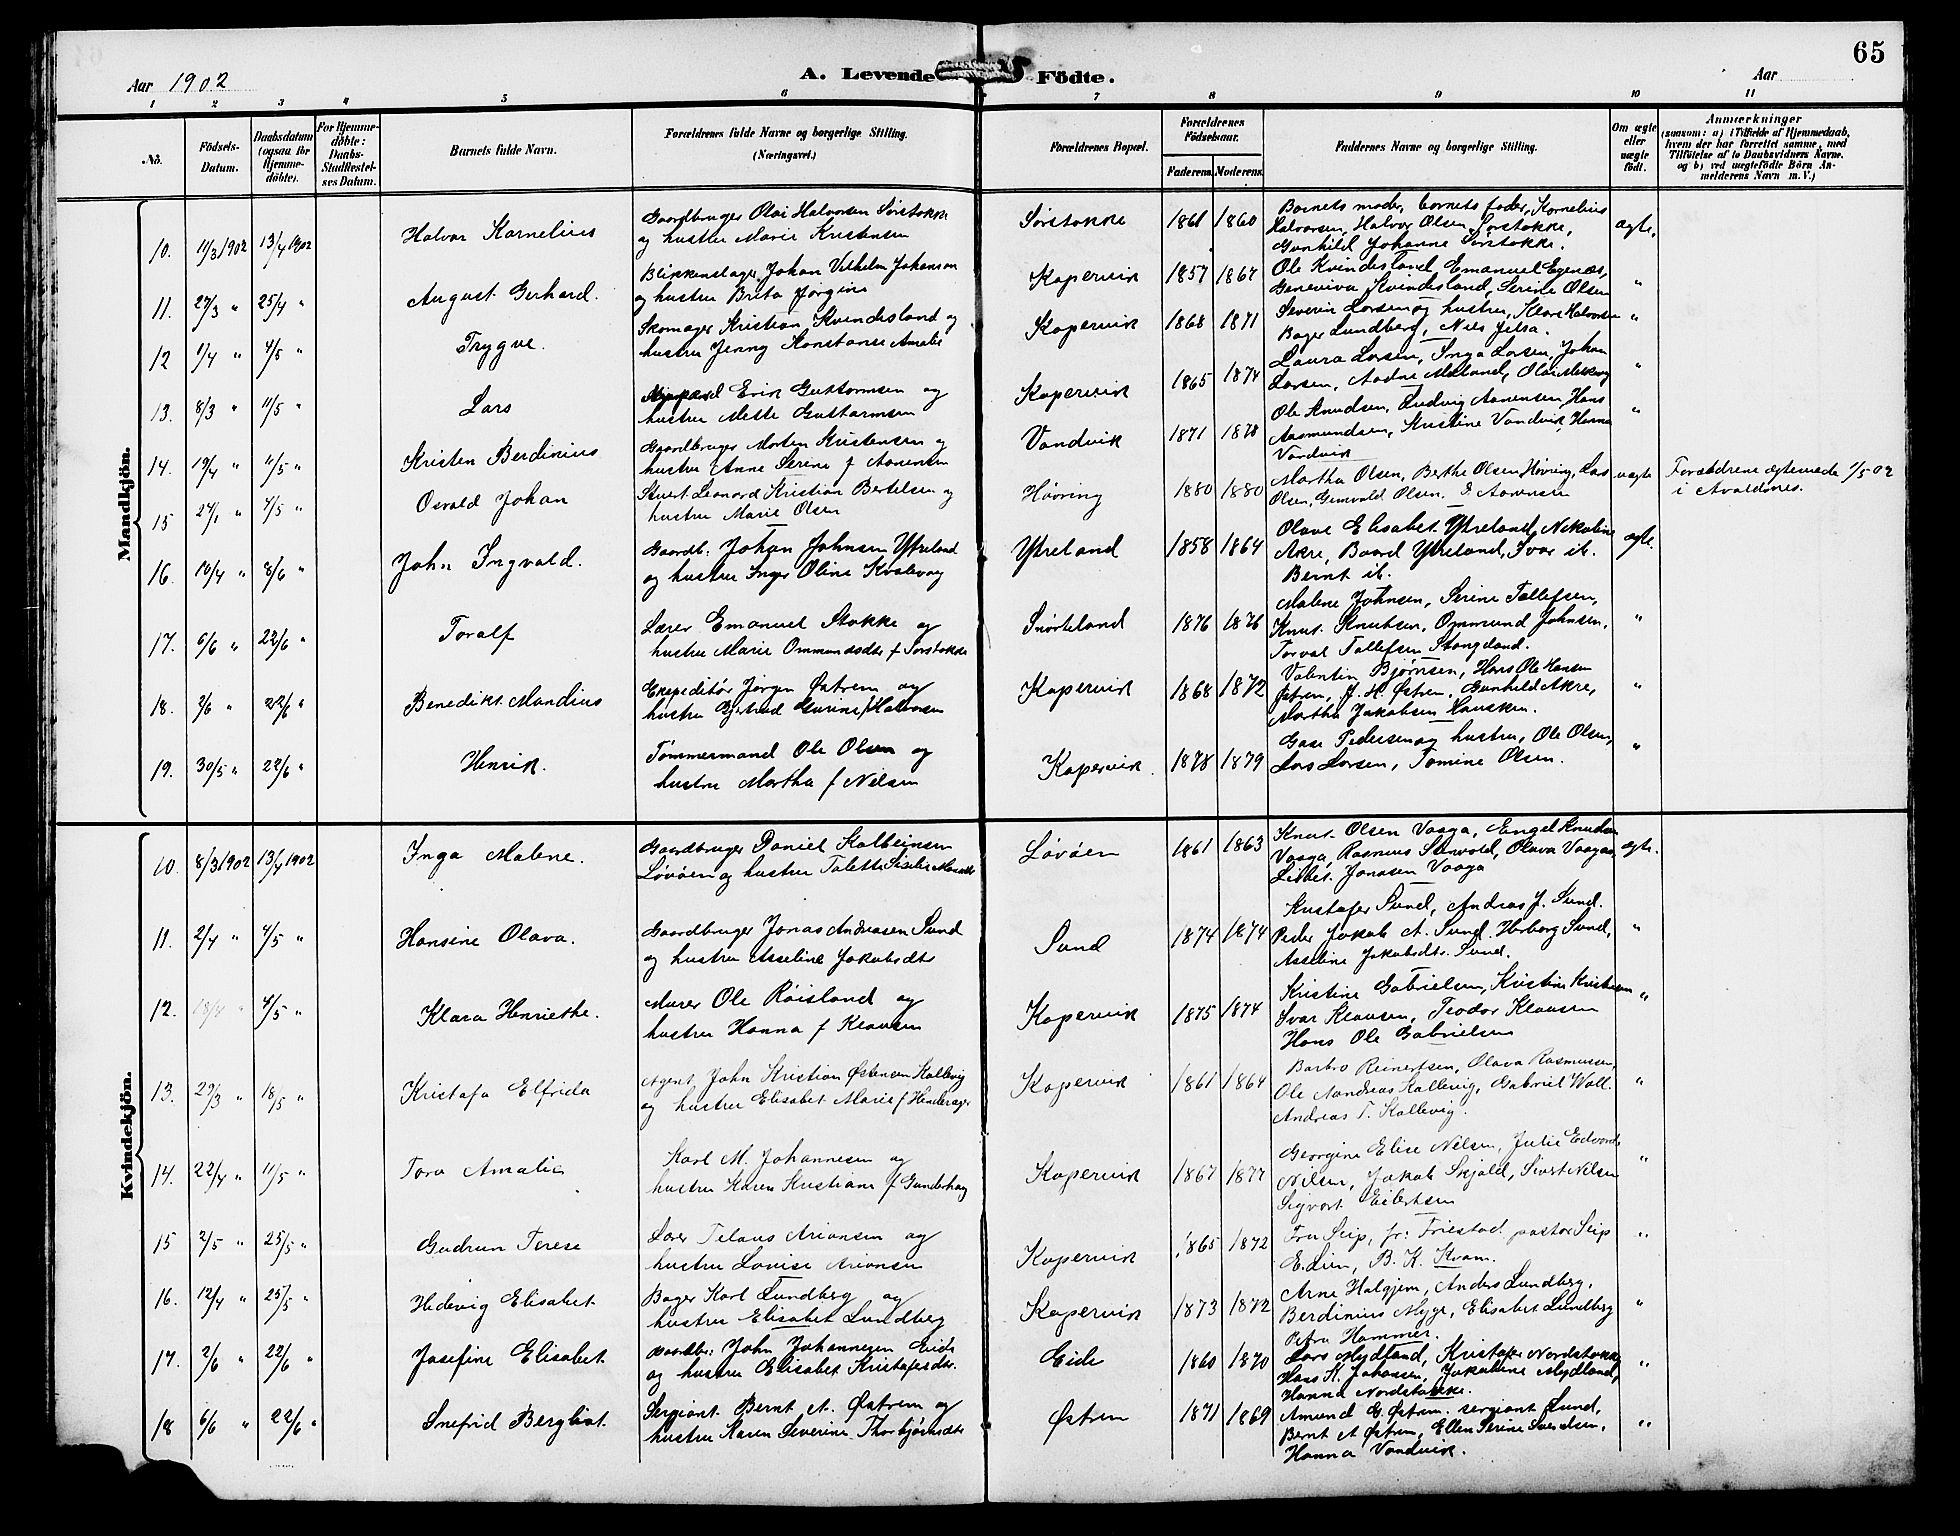 65
Aar 1902
A. Levende Födte.
Aar
1 2 3 4 5 6 7 8 9 10 11
No. Födsels-Datum. Daabsdatum (ogsaa for Hjemme-döbte). For Hjemme-döbte: Daabs-Stadfæstel-ses Datum. Barnets fulde Navn. Forældrenes fulde Navne og borgerlige Stilling. (Næringsvei.) Forældrenes Bopæl. Forældrenes Födselsaar. Faderens. Moderens. Faddernes Navne og borgerlige Stilling. Om ægte eller uægte födt. Anmærkninger (saasom: a) i Tilfælde af Hjemmedaab, hvem der har forrettet samme, med Tilföielse af to Daabsvidners Navne, og b) ved uægtefödte Börn An-melderens Navn m. V.)
Mandkjön.
10. 11/3 1902 13/4 1902 Halvar Kornelius Gaardbruger Olai Halvorsen Sørstokke Sørstokke 1861 1860 Barnets moder, barnets fader, Kornelius ægte.
og hustru Marie Kristensen Halvorsen, Halvor Olsen Sørstokke,
Gunhild Johanne Sørstokke.
11. 27/3 " 25/4 " August Gerhard. Blikkenslager Johan Vilhelm Johansen Kopervik 1857 1867 Ole Kvindesland, Emanuel Egenæs, "
og hustru Brita Jørgine Geneviva Kvindesland, Serine Olsen
12 1/4 " 4/5 " Trygve. Skomager Kristian Kvindesland og Kopervik 1868 1871 Severin Larsen og hustru, Klara Halvorsen "
hustru Jenny Konstanse Amalie Bager Lundberg, Niels Jelsa.
13. 8/3 " 11/5 " Lars Erik Guttormsen og Kopervik 1865 1874 Laura Larsen, Inga Larsen, Johan "
hustru Mette Guttormsen Larsen, Aadne Meland, Olai
14. 19/4 " 11/5 " Kristen Berdinius Gaardbruger Morten Kristensen og Vandvik 1871 1878 Ole Knudsen, Ludvig Aanensen, Hans "
hustru Anne Serine f Aanensen Aasmundsen, Kristine Vandvik, Hanna
Vandvik
15 27/1 " 4/5 " Osvald Johan Stuert Leonard Kristian Bertelsen og Høvring 1880 1880 Martha Olsen, Berthe Olsen Høvring, Lars uægte Forældrene ægteviede 1/5 02
hustru Marie Olsen Olsen, Grimvald Olsen. Aarensen i Avaldsnes.
16. 10/4 " 8/6 " John Ingvald. Gaardb: Johan Johnsen Ytreland Ytreland 1858 1864 Olave Elisabet Ytreland, Nikoline ægte.
og hustru Inger Oline Kvalevaag Akre, Baard Ytreland, Ivar ib.
Bernt ib.
17. 6/6 " 22/6 " Toralf Lærer Emanuel Stokke og Snørteland 1876 1876 Malene Johnsen, Serine Tollefsen, "
hustru Marie Ommundsdtr f Sørstokke Knut Knutsen, Ommund Johnsen,
Torval Tollefsen Stangeland.
18. 2/6 " 22/6 " Benedikt Mandius Expeditør Jørgen Østrem og Kopervik 1868 1872 Valentin Bjørnsen, Hans Ole Hansen "
hustru Gjertrud Gurine f Halvorsen Østrem, J. H. Østrem, Gunhild Akre,
Martha Jakobsen Hausken.
19. 30/5 " 22/6 " Henrik. Tømmermand Ole Olsen og Kopervik. 1878 1879 Gase Pedersen og hustru, Ole Olsen, "
hustru Martha f Nilsen Lars Larsen, Tomine Olsen.
Kvindekjön.
10. 8/3 1902 13/4 1902 Inga Malene. Gaardbruger Daniel Kolbeinsen Løvøen 1861 1863 Knut Olsen Vaaga, Engel Knudsen ægte.
Løvøen og hustru Talette Vaaga, Rasmus Sunvold, Olava Vaaga,
Lisbet Jonasen Vaaga
11. 2/4 " 4/5 " Hansine Olava. Gaardbruger Jonas Andreasen Sund Sund 1874 1874 Kristofer Sund, Andreas J. Sund. "
og hustru Asseline Jakobsdtr Peder Jakob A. Sund. Herborg Sund,
Asseline Jakobsdtr. Sund.
12. 18/4 " 4/5 " Klara Henriethe. Murer Ole Røisland og Kopervik 1875 1874 Kristine Gabrielsen, Kristine Kristensen "
hustru Hanna f Klausen Ivar Klausen, Teodor Klausen
Hans Ole Gabrielsen
13. 29/3 " 18/5 " Kristofa Elfrida Agent John Kristian Østensen Kallevig Kopervik 1861 1864 Barbro Reinertsen, Olava Rasmussen, "
og hustru Elisabet Marie f Henderager Ole Aandreas Kallevig, Gabriel Wall.
Andreas T. Kallevig.
14. 22/4 " 11/5 " Tora Amalie Karl M. Johannesen og Kopervik 1867 1877 Georgine Elise Nilsen, Julie Edvards "
hustru Karen Kristiane f Gunderhaug Nilsen, Jakob Skjold, Sivert Nilsen
Sigvart Eilertsen
15 2/5 " 25/5 " Gudrun Terese Lærer Telaus Arionsen og Kopervik 1865 1872 Fru Seip, fr: Friestad. pastor Seip "
hustru Lovise Arionsen E. Lien, B. K. Kvam.
16. 12/4 " 25/5 " Hedevig Elisabet Bager Karl Lundberg og Kopervik 1873 1872 Arne Halgjem, Anders Lundberg, "
hustru Elisabet Lundberg Berdinius Myge, Elisabet Lundberg
Petra Hammer.
17. 2/6 " 22/6 " Josefine Elisabet Gaardbr: John Johannesen Eide Eide 1860 1870 Lars Mydland, Kristofer Nordstokke "
og hustru Elisabet Kristofersdtr. Hans H. Johansen, Jakobine Mydland,
Hanna Nordstokke.
18 6/6 " 22/6 " Snefrid Bergliot Sergiant Bernt A. Østrem og Østrem 1871 1869 Amund G. Østrem. sergiant Lund, "
hustru Karen Severine Thorbjørnsdtr Bernt A Østrem, Ellen Serine Svendsen,
Hanna Vandvik.